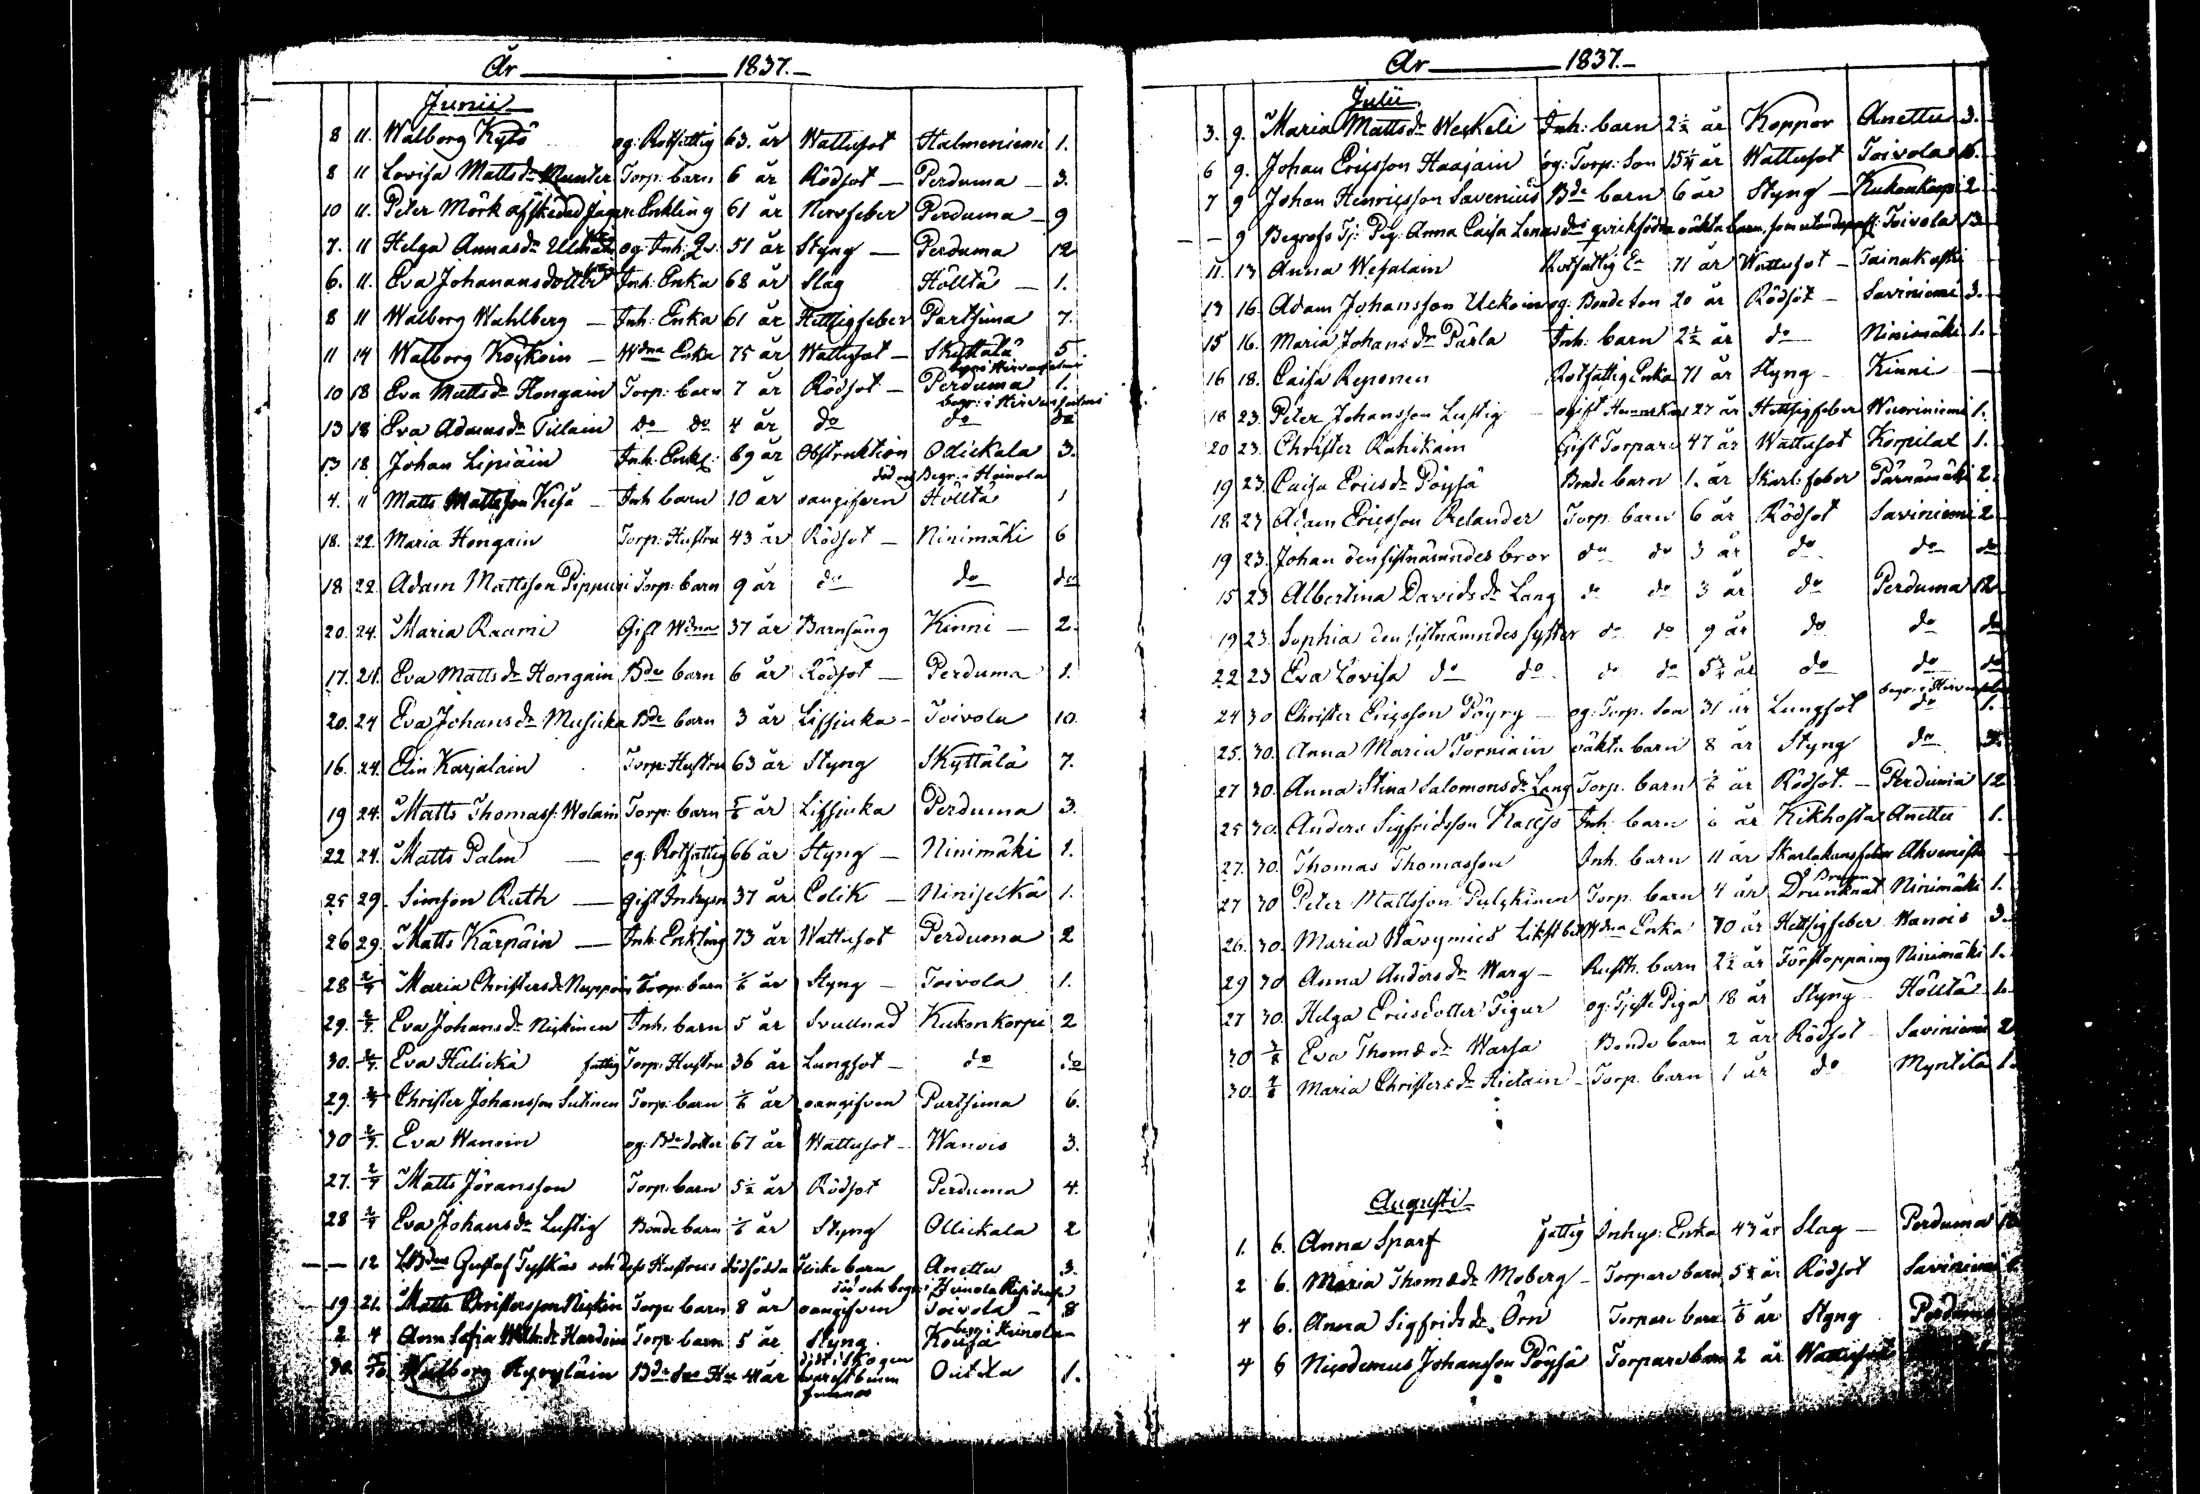 År 1837.
Junii
8 11. Walborg Kytö og: Rotfattig 63. år Wattusot Halmeniemi 1.
8 11 Lovisa Mattsdr Munter Torp: barn 6 år Rödsot — Perduma — 3.
10 11. Peter Mörk afskedad Jägare Enkling 61 år Nervfeber Perduma — 9
7. 11 Helga Annasdr og: Inh: Qv: 51 år Styng — Perduma 12
6. 11. Eva Johanansdotter Inh: Enka 68 år Slag Höltä — 1.
8 11 Walborg Wahlberg — Inh: Enka 61 år Hettsigfeber Partsima 7.
11 14 Walborg Koskoin — Wdna Enka 75 år Wattusot — Skyttälä 5
10 18 Eva Mattsdr Hongain Torp: barn 7 år Rödsot — Perduma 1.
begr: i Hirvensalmi
13 18 Eva Adamsdr Tillain do do 4 år do do do
13 18 Johan Lipiäin Inh: Enkl: 69 år Obstruktion Ollickala 3.
död och Begr: i Heinola
4. 11 Matts Mattsson Kesä — Inh barn 10 år oangifven Höltä 1
18. 22. Maria Hongain Torp: Hustru 43 år Rödsot — Ninimäki 6
18 22. Adam Mattsson Pippuri Torp: barn 9 år do do do
20. 24. Maria Raami Gift Wdna 37 år Barnsäng Kinni — 2.
17. 21. Eva Mattsdr Hongain Bde barn 6 år Rödsot — Perduma 1.
20. 24 Eva Johansdr Musicka Bde barn 3 år Lissjuka — Toivola 10.
16. 24. Elin Karjalain Torp: Hustru 63 år Styng Skyttälä 7.
19 24. Matts Thomass: Wolain Torp: barn år Lissjuka Perduma 3.
22 24. Matts Palm — og: Rotfattig 66 år Styng — Ninimäki 1.
25 29. Simson Rath — gift Inhysn 37 år Colik — Ninijeckä 1.
26 29. Matts Kärpäin — Inh: Enkling 73 år Wattusot Perduma 2
28 2/7 Maria Christersdr Torp: barn år Styng — Toivola 1.
29. 2/7. Eva Johansdr Niskinen Inh. barn 5 år Svullnad Kukonkorpi 2
30. 2/7. Eva Halickä fattig Torp: Hustru 36 år Lungsot — do do
29. 2/7 Christer Johansson Sutinen Torp: barn år oangifven Partsima 6.
30 2/7. Eva Wanoin og: Bde dotter 67 år Wattusot — Wanois 3.
27. 2/7 Matts Jöransson Torp: barn 5½ år Rödsot Perduma 4.
28 2/7 Eva Johansdr Lustig Bonde barn år Styng Ollickala 2
— 12 Gustaf Tyskäs och dess Hustrus dödfödda Flicke barn Anettu 3.
19 21. Matts Christersson Niskin Torpe: barn 8 år oangifven Toivola — 8
begr: i Heinola
2 4 Ann Sofia Torp: barn 5 år Styng. Kousa
Walborg 41 år Outila 1.
År 1837.
Julii
3. 9. Maria Mattsdr Weskeli Inh: barn 2½ år Koppor Anettu 3.
6 9. Johan Ericsson Haajain og: Torp: Son år Wattusot Toivola 16.
7 9 Johan Henricsson Savenius Bde barn 6 år Styng — Kukonkorpi 2
— 9 Begrofs Tj: Pig: Anna Caisa Lenasdrs qvickfödda oäkta barn, som Toivola 13
11. 13 Anna Wesalain Rotfattig Ea 71 år Wattusot — Tainakoski
13 16. Adam Johansson Uckoin og: Bonde Son 20 år Rödsot — Saviniemi 3.
15 16. Maria Johansdr Pärla Inh: barn 2½ år do Ninimäki 1.
16 18. Caisa Reponen Rotfattig Enka 71 år Styng — Kinni —
18 23. Peter Johansson Lustig ogift 27 år Hettsigfeber Wuoriniemi 1.
20 23. Christer Rahikain Gift Torpare 47 år Wattusot Korpilax 1.
19 23. Caisa Ericsdr Pöysä Bonde barn 1. år Skarl: feber Pärnämäki 2.
18 23 Adam Ericsson Relander Torp: barn 6 år Rödsot Saviniemi 2
19 23. Johan den sistnämndes bror do do 3 år do do do
15 23 Albertina Davidsdr Lang do do 3 år do Perduma 12
19 23. Sophia den sistnämndes syster do do 9 år do do do
22 23 Eva Lovisa do do do do år do do do
24 30 Christer Ericsson Pöyry — og: Torp. Son 31 år Lungsot do 1.
25. 30. Anna Maria Torniain oäkta barn 8 år Styng do
27 30. Anna Stina Salomonsdr Lang Torp. barn år Rödsot. — Perduma 12
25 30. Anders Sigfridsson Inh: barn år Kikhosta Anettu 1.
27. 30. Thomas Thomasson Inh. barn 11 år Skarlakansfeber Ahvenisto
27 30 Peter Mattsson Pulkkinen Torp. barn 4 år Drunknat Ninimäki 1.
26. 30. Maria Enka 70 år Hettsigfeber Wanois 3.
29 30 Anna Andersdr Warg — Rusth. barn 2½ år Förstoppning Ninimäki 1.
27 30. Helga Ericsdotter Tigur og: Tjste Piga 18 år Styng Höltä 1.
30 Eva Thomædr Warsa Bonde barn 2 år Rödsot Saviniemi 2
30. Maria Christersdr Hietain Torp. barn 1 år do Myntilä 1.
Augusti
1. 6. Anna Sparf fattig Inhys: Enka 43 år Slag — Perduma
2 6. Maria Thomædr Moberg — Torpare barn år Rödsot Saviniemi
4 6. Anna Sigfridsdr Örn Torpare barn år Styng Perduma
4 6 Nicodemus Johansson Pöysä Torpare barn 2 år Wattusot